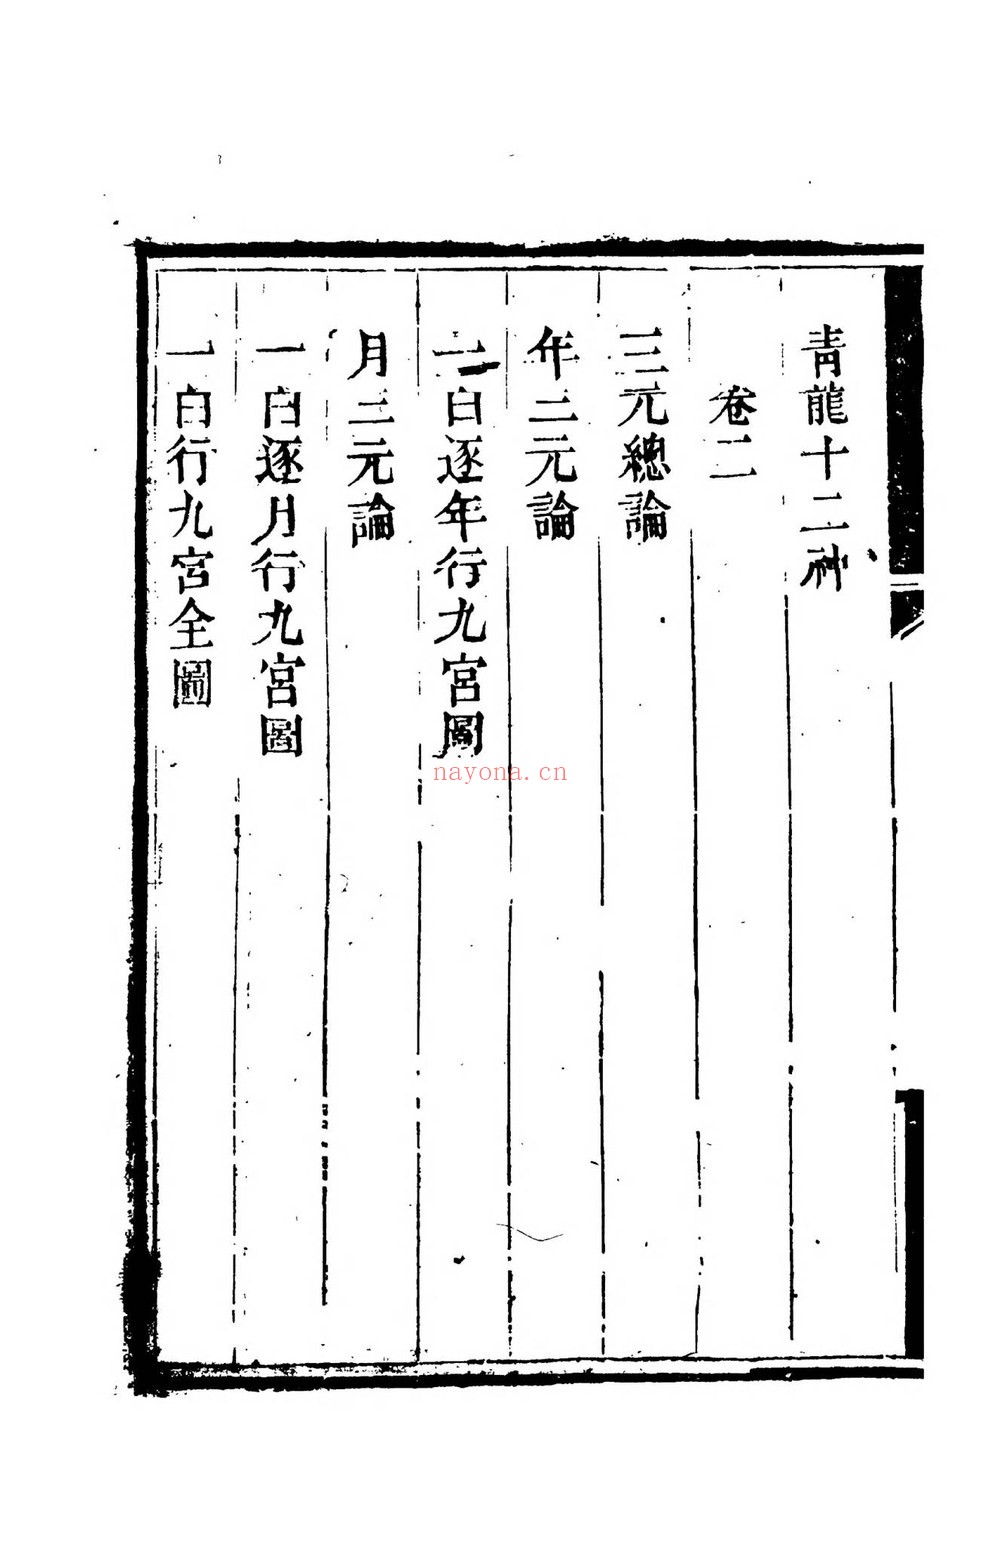 青龍十二神
卷二
三元總論
年三元論
一白逐年行九宮圖
月三元論
一白逐月行九宮圖
一白行九宮全圖
nayona.cn